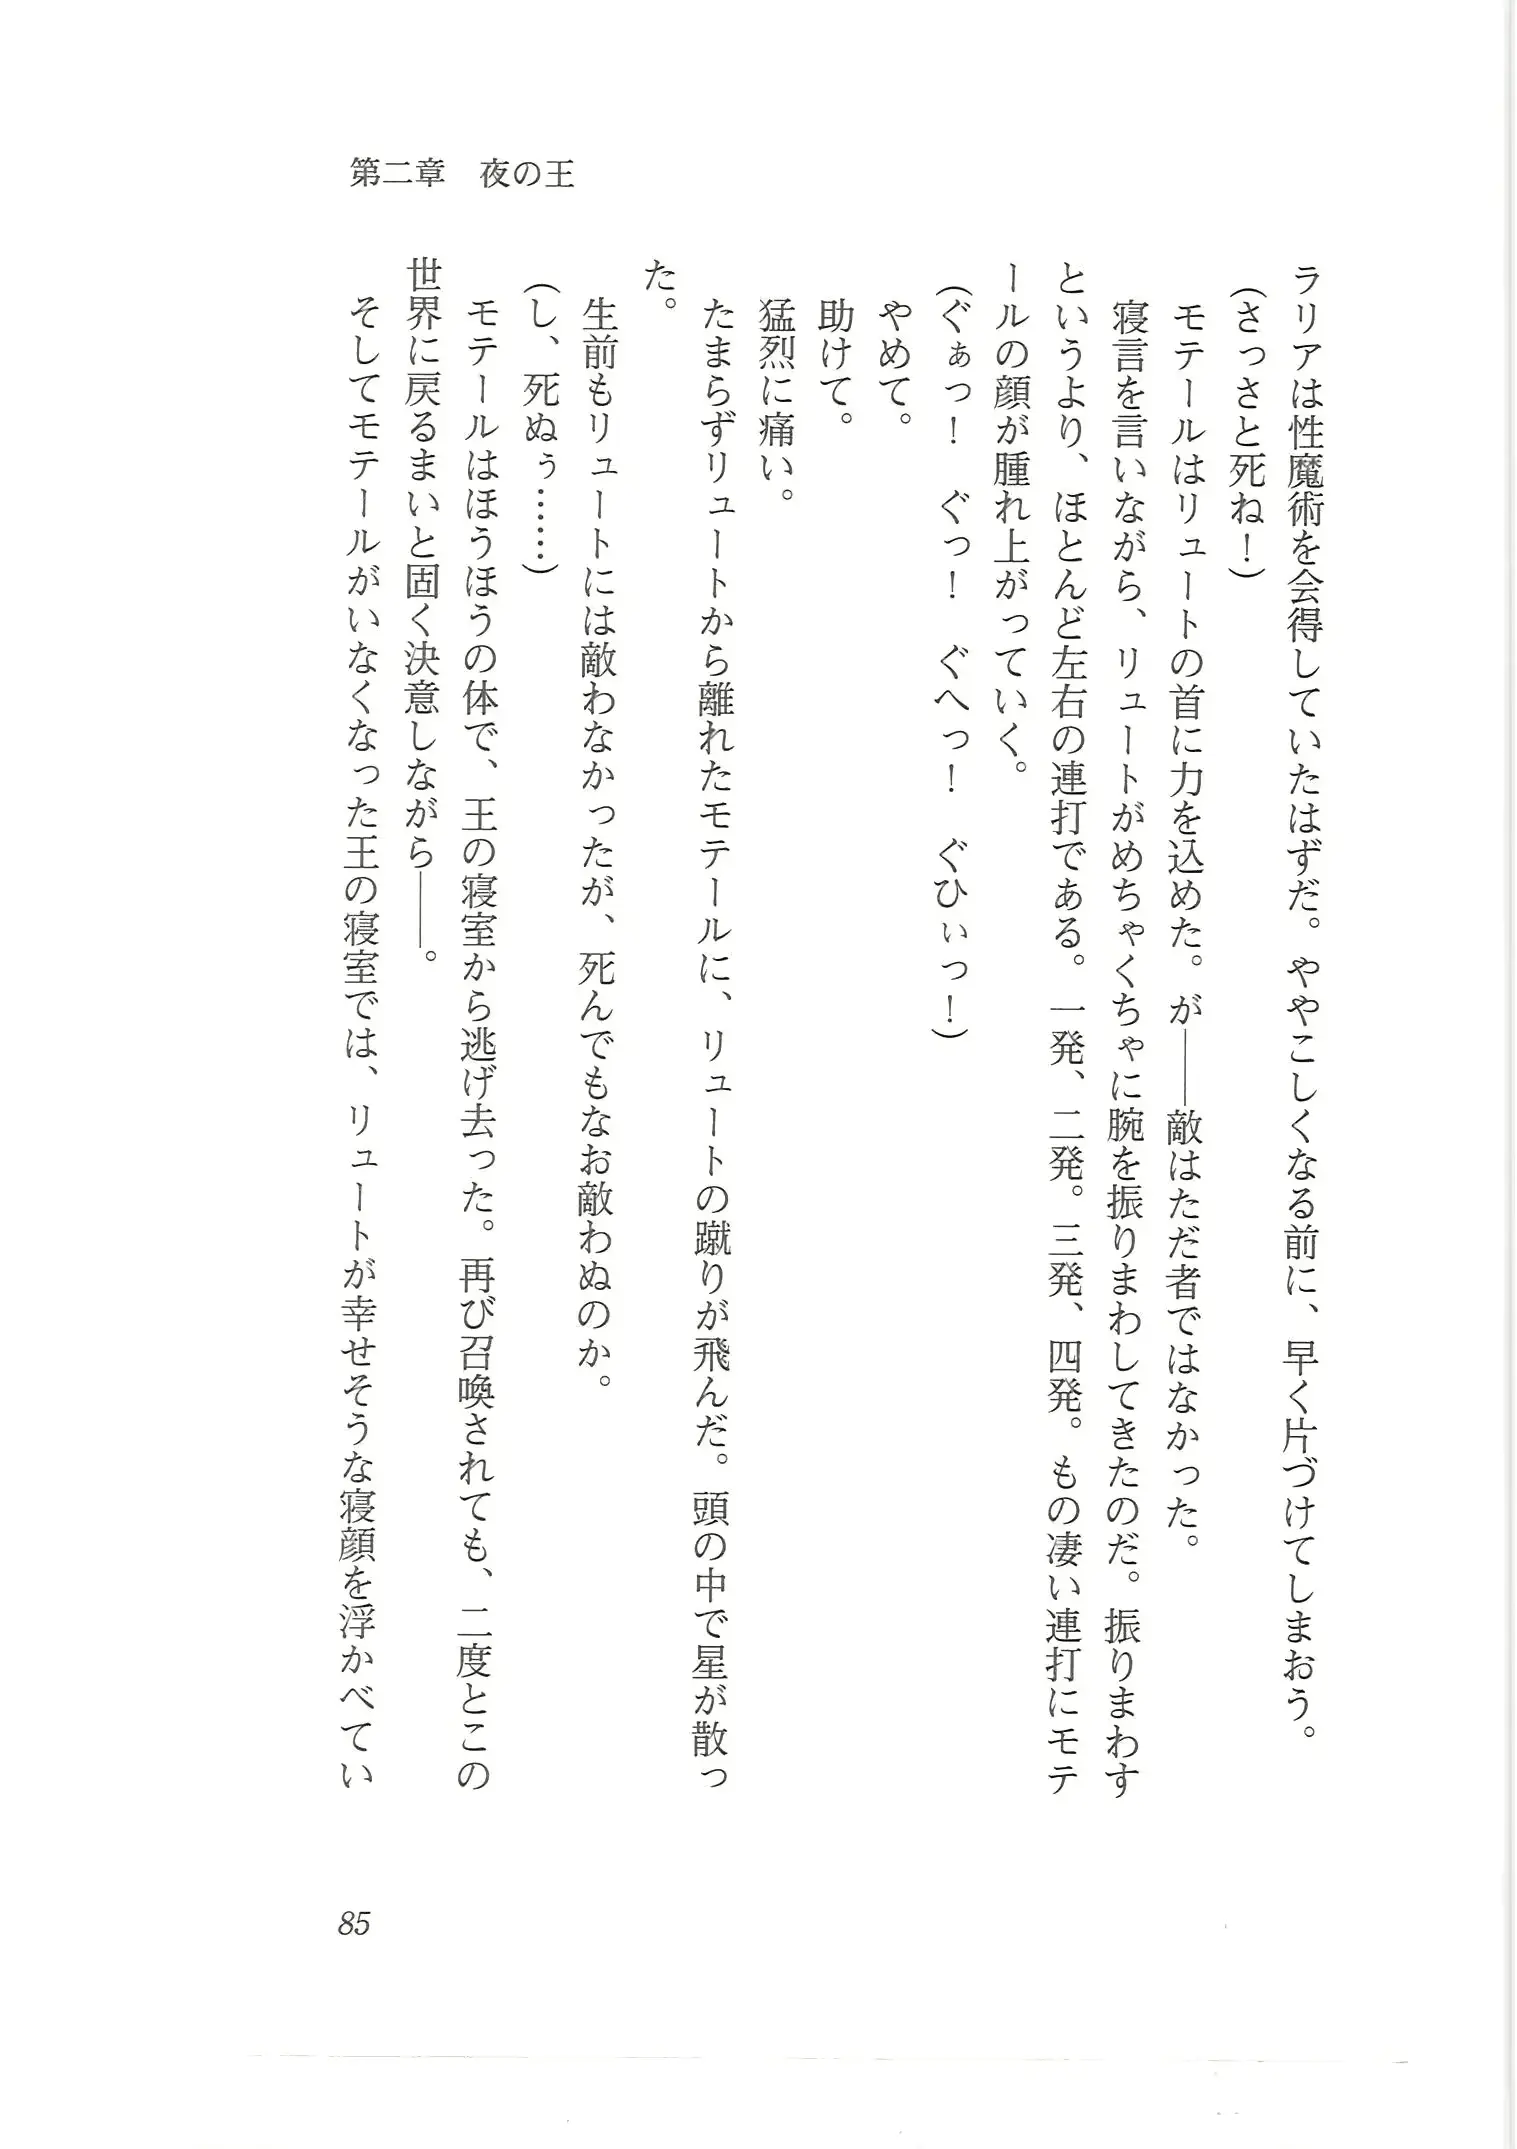 第二章　夜の王
ラリアは性魔術を会得していたはずだ。ややこしくなる前に、早く片づけてしまおう。
（さっさと死ね！）
　モテールはリュートの首に力を込めた。が――敵はただ者ではなかった。
　寝言を言いながら、リュートがめちゃくちゃに腕を振りまわしてきたのだ。振りまわす
というより、ほとんど左右の連打である。一発、二発。三発、四発。もの凄い連打にモテ
ールの顔が腫れ上がっていく。
（ぐぁっ！　ぐっ！　ぐへっ！　ぐひぃっ！）
　やめて。
　助けて。
　猛烈に痛い。
　たまらずリュートから離れたモテールに、リュートの蹴りが飛んだ。頭の中で星が散っ
た。
　生前もリュートには敵わなかったが、死んでもなお敵わぬのか。
（し、死ぬぅ……）
　モテールはほうほうの体で、王の寝室から逃げ去った。再び召喚されても、二度とこの
世界に戻るまいと固く決意しながら――。
　そしてモテールがいなくなった王の寝室では、リュートが幸せそうな寝顔を浮かべてい
85